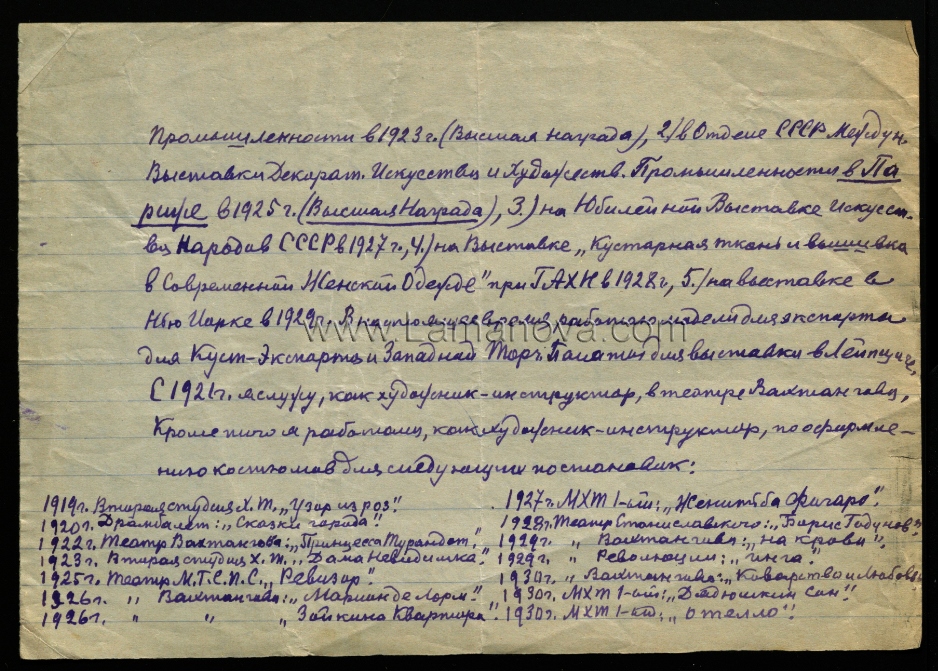 Промышленности в 1923 г. (Высшая награда), 2/ в Отделе СССР Междун.
Выставки Декорат. Искусства и Художеств. Промышленности в Па
риже в 1925 г. (Высшая Награда), 3.) на Юбилейной Выставке Искусст-
ва Народов СССР в 1927 г., 4.) на Выставке „Кустарная ткань и вышивка
в Современной Женской Одежде" при ГАХН в 1928 г, 5.) на выставке в
Нью Иорке в 1929 г. В время работаю модели для экспорта
для Куст-Экспорта и Западной Торг. Палаты для выставки в Лейпциге,
С 1921 г. я служу, как художник-инструктор, в театре Вахтангова,
Кроме того я работала, как художник-инструктор, по оформле-
нию костюмов для следующих постановок:
1919 г. Вторая студия Х.Т. „Узор из роз".
1920 г. Драмбалет: „Сказки города"
1922 г. Театр Вахтангова: „Принцесса Турандот".
1923 г. Вторая студия Х.Т. „Дама Невидимка."
1925 г. Театр М.Г.С.П.С. „Ревизор".
1926 г. „ Вахтангова: „Марион де Лорм".
1926 г. „ „ „Зойкина Квартира".
1927 г. МХТ 1-ый: „Женитьба Фигаро".
1928 г. Театр Станиславского: „Борис Годунов",
1929 г. „ Вахтангова: „На крови",
1929 г. „ Революции: „Инга".
1930 г. „ Вахтангова: „Коварство и Любовь"
1930 г. МХТ 1-ый: „Дядюшкин сон".
1930 г. МХТ 1-ый: „Отелло".
www.Lamanova.com